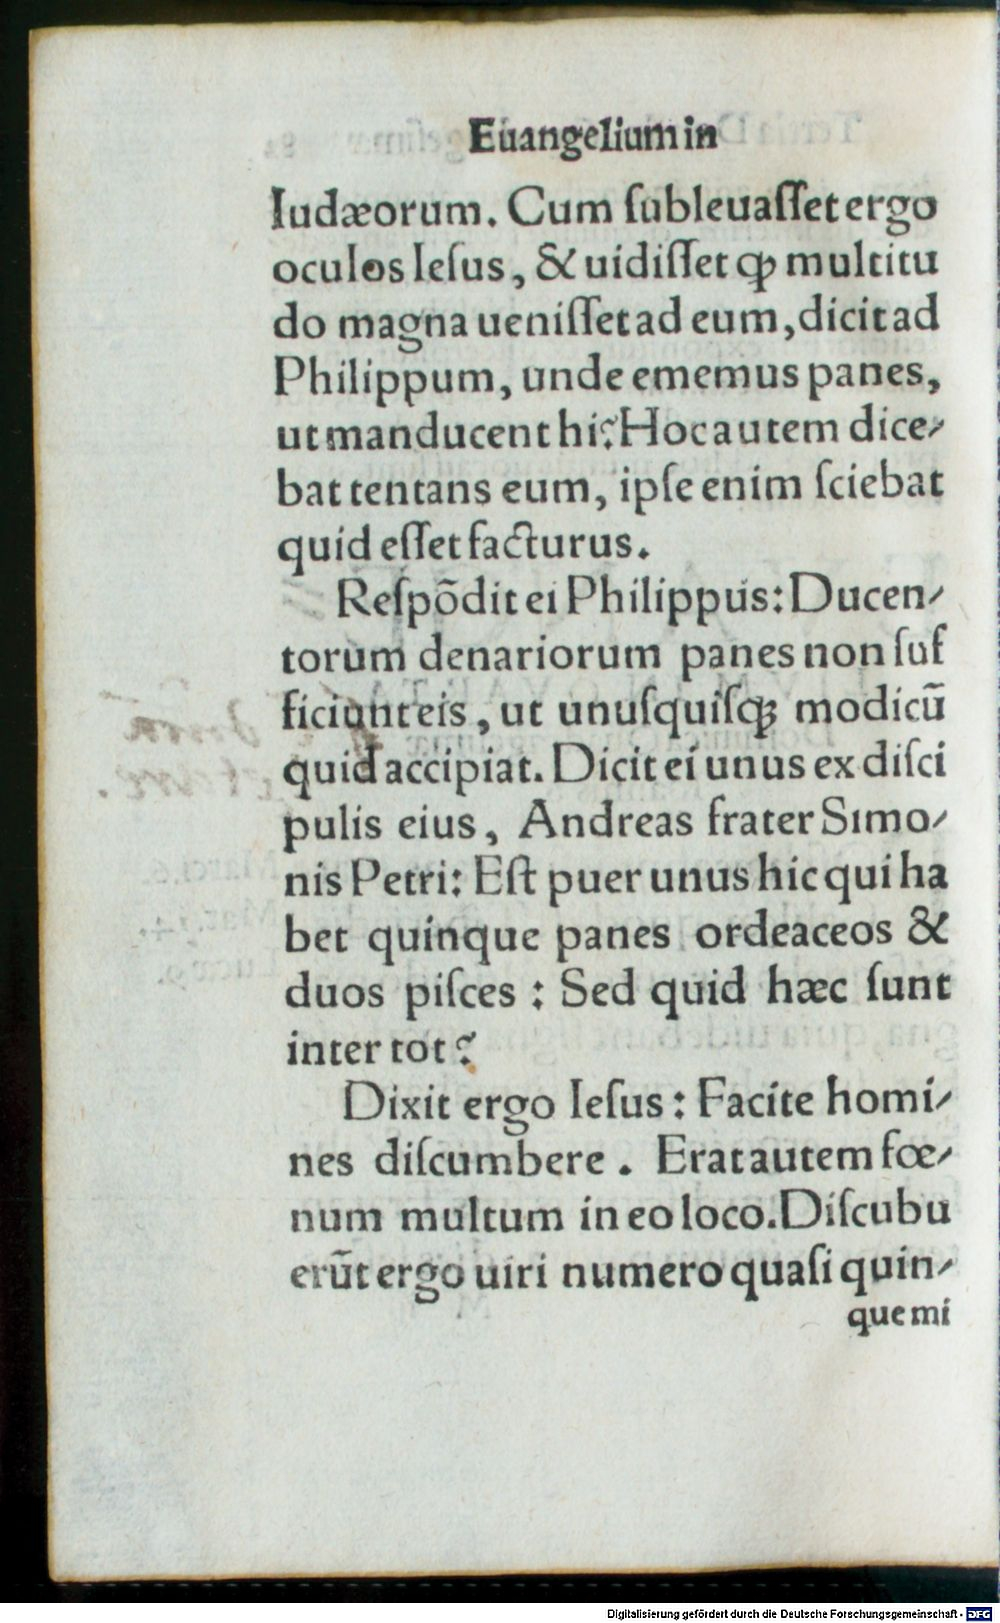 Euangelium in
Iudæorum. Cum ſubleuaſſet ergo
oculos Ieſus, & uidiſſet ꝙ multitu
do magna ueniſſet ad eum, dicit ad
Philippum, unde ememus panes,
ut manducent hi? Hoc autem dice⸗
bat tentans eum, ipſe enim ſciebat
quid eſſet facturus.
Reſpõdit ei Philippus: Ducen⸗
torum denariorum panes non ſuf
ficiunt eis, ut unuſquiſqꝫ modicũ
quid accipiat. Dicit ei unus ex diſci
pulis eius, Andreas frater Simo⸗
nis Petri: Eſt puer unus hic qui ha
bet quinque panes ordeaceos &
duos piſces : Sed quid hæc ſunt
inter tot?
Dixit ergo Ieſus : Facite homi⸗
nes diſcumbere . Erat autem fœ⸗
num multum in eo loco. Diſcubu
erũt ergo uiri numero quaſi quin⸗
que mi
Digitalisierung gefördert durch die Deutsche Forschungsgemeinschaft - DFG